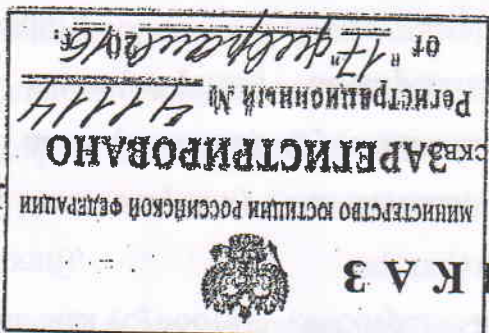 КАЗ
МИНИСТЕРСТВО ЮСТИЦИИ РОССИЙСКОЙ ФЕДЕРАЦИИ
ЗАРЕГИСТРИРОВАНО
Регистрационный № 41114
от "17" февраля 2016